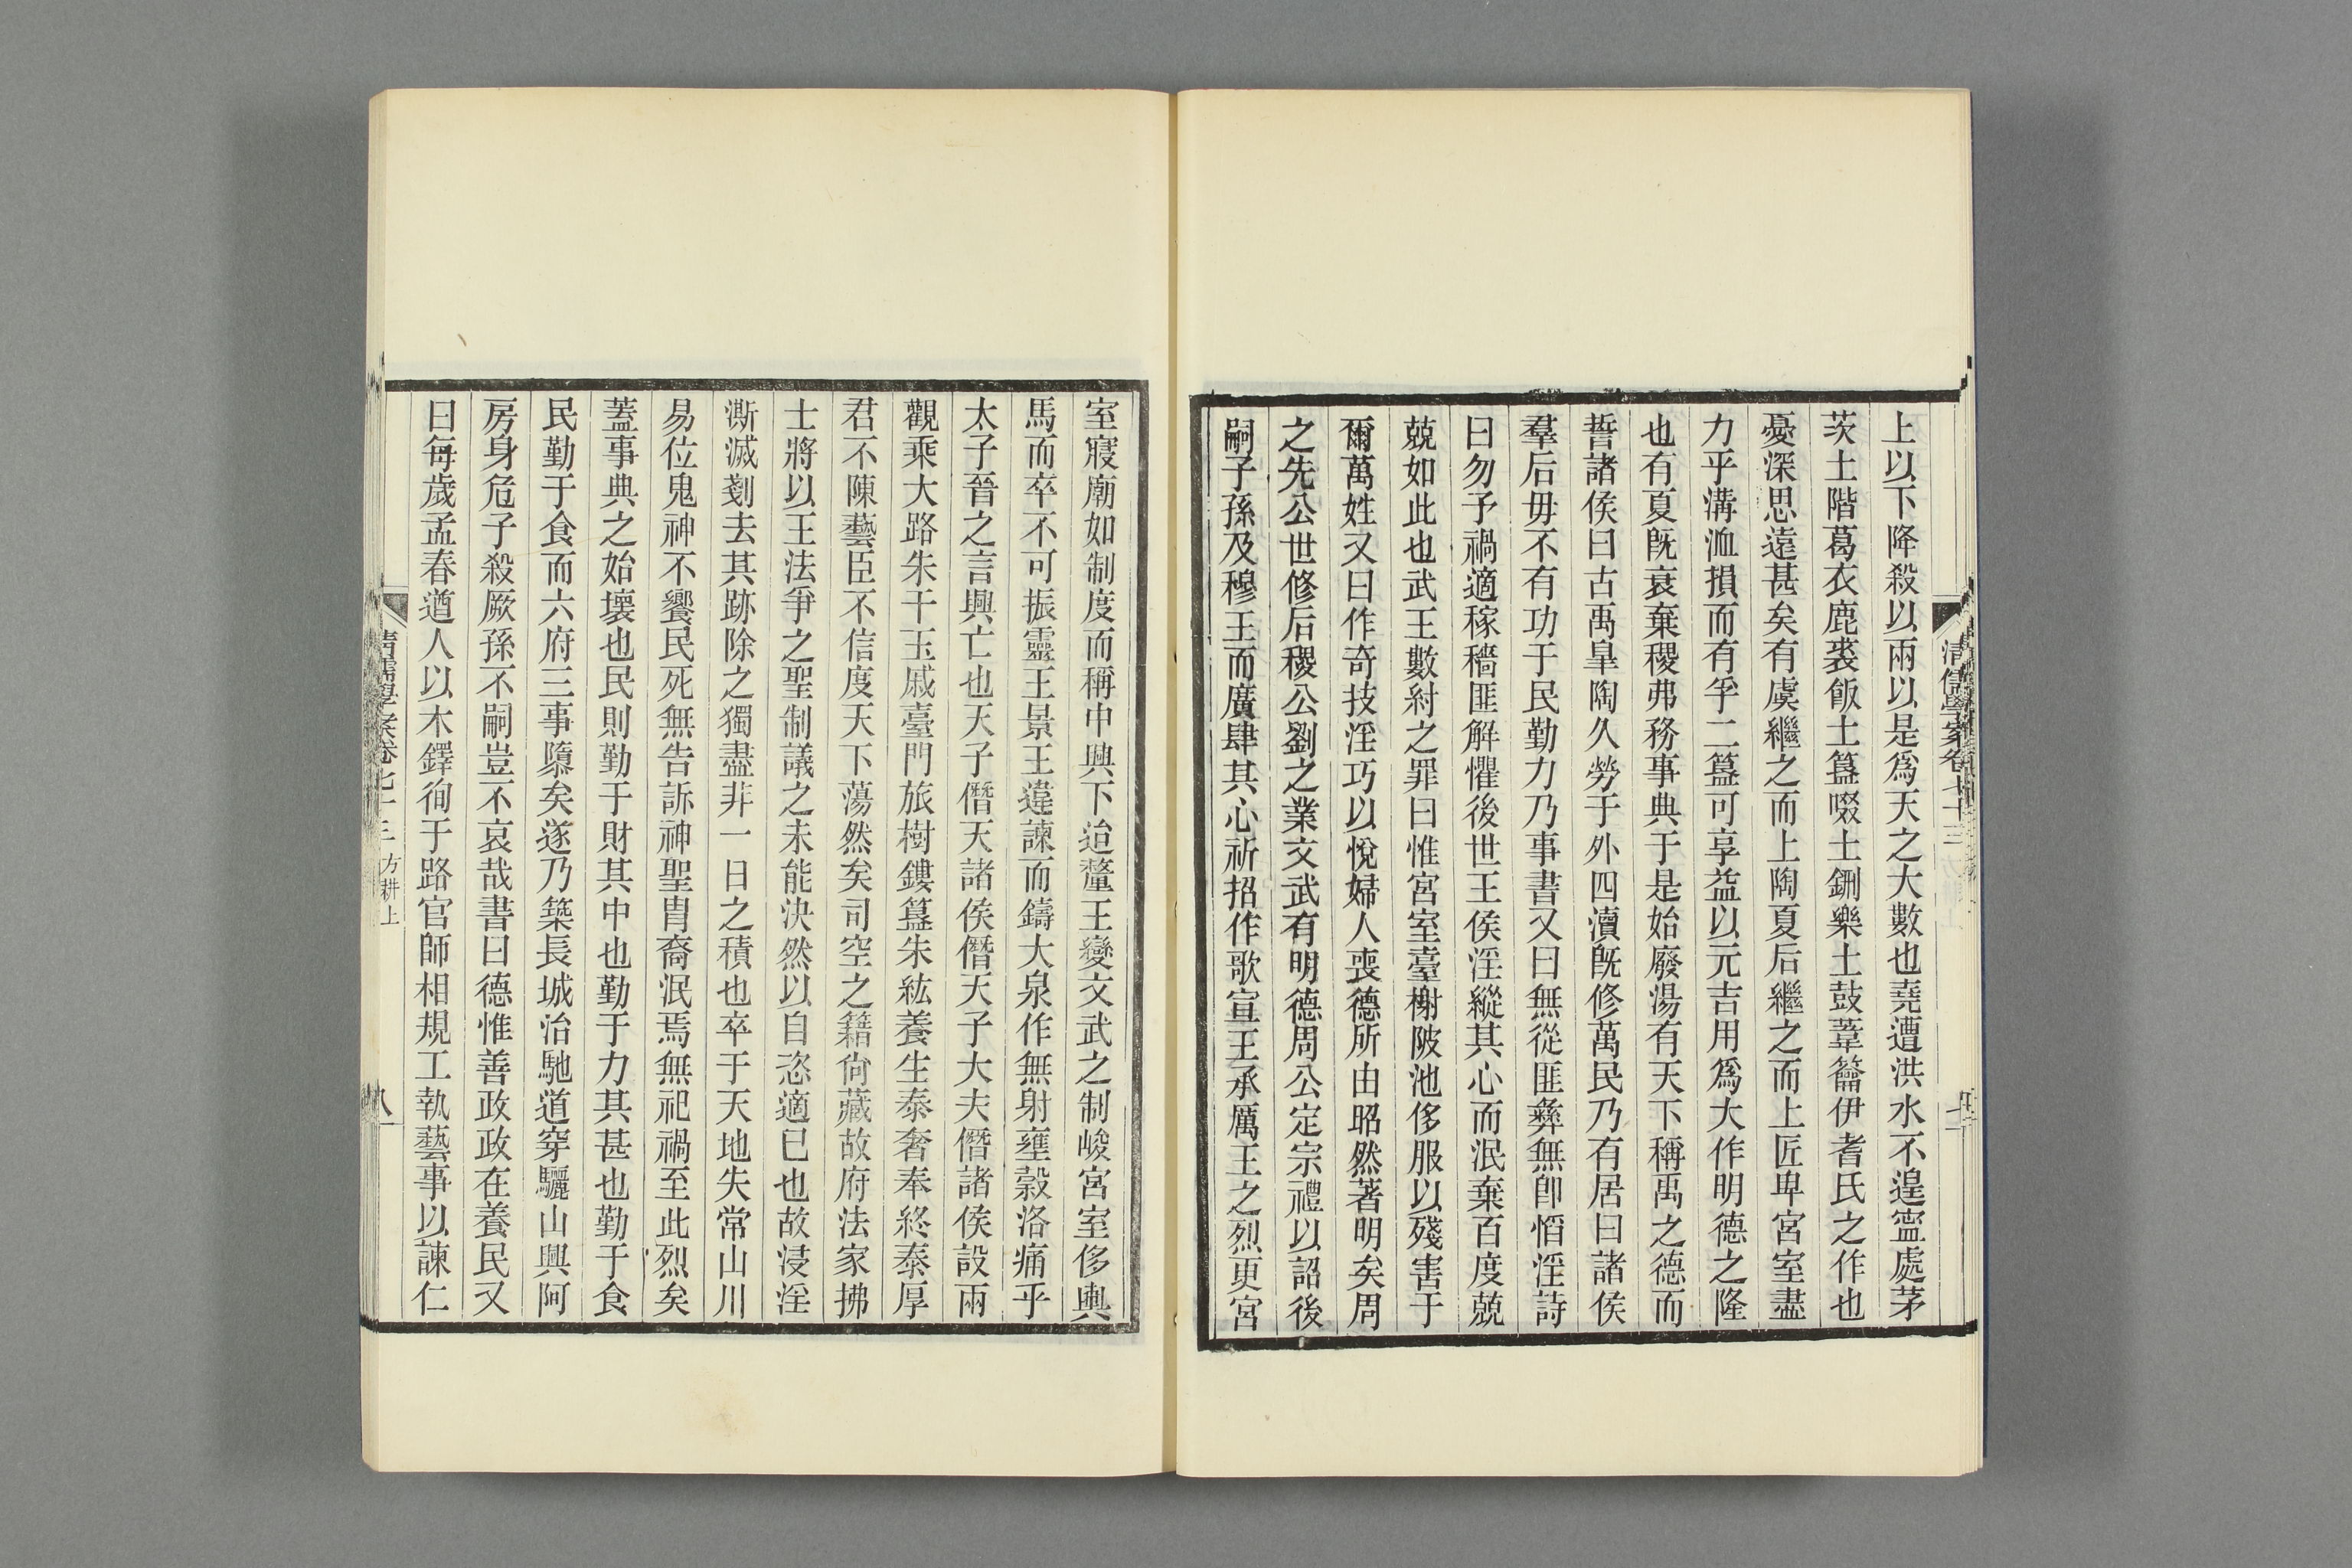 清儒學案卷七十三
上以下降殺以兩以是爲天之大數也堯遭洪水不遑寧處茅
茨土階葛衣鹿裘飯土簋啜土鉶樂土鼓葦籥伊耆氏之作也
憂深思遠甚矣有虞繼之而上陶夏后繼之而上匠卑宮室盡
力乎溝洫損而有孚二簋可享益以元吉用爲大作明德之隆
也有夏旣衰棄稷弗務事典于是始廢湯有天下稱禹之德而
誓諸侯曰古禹皐陶久勞于外四瀆旣修萬民乃有居曰諸侯
羣后毋不有功于民勤力乃事書又曰無從匪彝無卽慆淫詩
曰勿予禍適稼穡匪解懼後世王侯淫縱其心而泯棄百度兢
兢如此也武王數紂之罪曰惟宮室臺榭陂池侈服以殘害于
爾萬姓又曰作奇技淫巧以悅婦人喪德所由昭然著明矣周
之先公世修后稷公劉之業文武有明德周公定宗禮以詔後
嗣子孫及穆王而廣肆其心祈招作歌宣王承厲王之烈更宮
室寢廟如制度而稱中興下迨釐王變文武之制峻宮室侈輿
馬而卒不可振靈王景王違諫而鑄大泉作無射壅榖洛痛乎
太子晉之言興亡也天子僭天諸侯僭天子大夫僭諸侯設兩
觀乘大路朱干玉戚臺門旅樹鏤簋朱紘養生泰奢奉終泰厚
君不陳藝臣不信度天下蕩然矣司空之籍尙藏故府法家拂
士將以王法爭之聖制議之未能決然以自恣適已也故浸淫
澌滅剗去其跡除之獨盡非一日之積也卒于天地失常山川
易位鬼神不饗民死無告訴神聖胄裔泯焉無祀禍至此烈矣
蓋事典之始壞也民則勤于財其中也勤于力其甚也勤于食
民勤于食而六府三事隳矣遂乃築長城治馳道穿驪山興阿
房身危子殺厥孫不嗣豈不哀哉書曰德惟善政政在養民又
曰每歲孟春遒人以木鐸徇于路官師相規工執藝事以諫仁
清儒學案卷七十三 方耕上
八